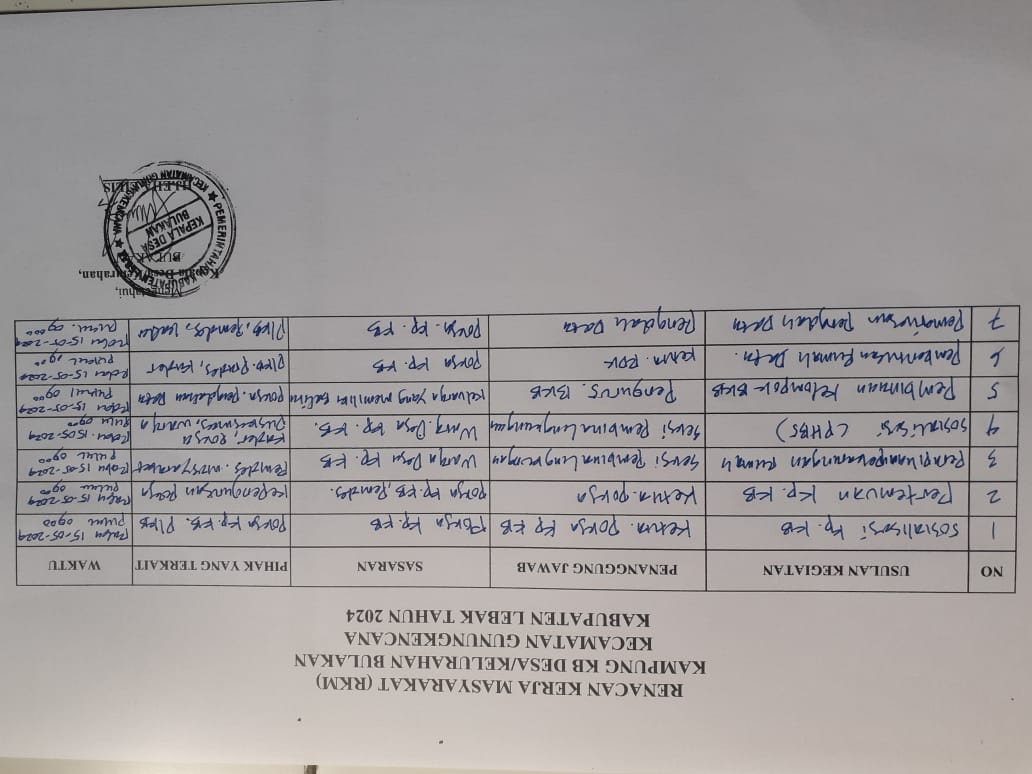 RENACAN KERJA MASYARAKAT (RKM)
KAMPUNG KB DESA/KELURAHAN BULAKAN
KECAMATAN GUNUNGKENCANA
KABUPATEN LEBAK TAHUN 2024
NO USULAN KEGIATAN PENANGGUNG JAWAB SASARAN PIHAK YANG TERKAIT WAKTU
1 Sosialisasi Kp. KB Ketua Pokja Kp KB Pokja Kp. KB Pokja Kp. KB. PLKB Rabu 15-05-2024
Pukul 0900
2 Pertemuan Kp. KB Ketua Pokja Pokja Kp KB, Pemdes. Kepengurusan Pokja Rabu 15-05-2024
Pukul 0900
3 Rumah Seksi Pembina Lingkungan Warga Desa Kp. KB Pemdes. Masyarakat Rabu 15-05-2024
Pukul 0900
4 Sosialisasi (PHBS) Seksi Pembina Lingkungan Warga Desa Kp. KB. Kader, Pokja
Puskesmas, Warga Rabu 15-05-2024
Pukul 0900
5 Pembinaan Kelompok BKB Pengurus. BKB Keluarga Yang memiliki balita Pokja. Rabu 15-05-2024
Pukul 0900
6 Pembentukan Rumah Data. Ketua. RDK Pokja Kp. KB PLKB. Pemdes, Kader Rabu 15-05-2024
Pukul 0900
7 Pengolah Data Pengolah Data Pokja. Kp. KB PLKB, Pemdes, Kader Rabu 15-05-2024
Pukul. 0900
Mengetahui,
Kepala Desa/Kelurahan,
BULAKAN
PEMERINTAH KABUPATEN LEBAK
KEPALA DESA
BULAKAN
KECAMATAN GUNUNGKENCANA